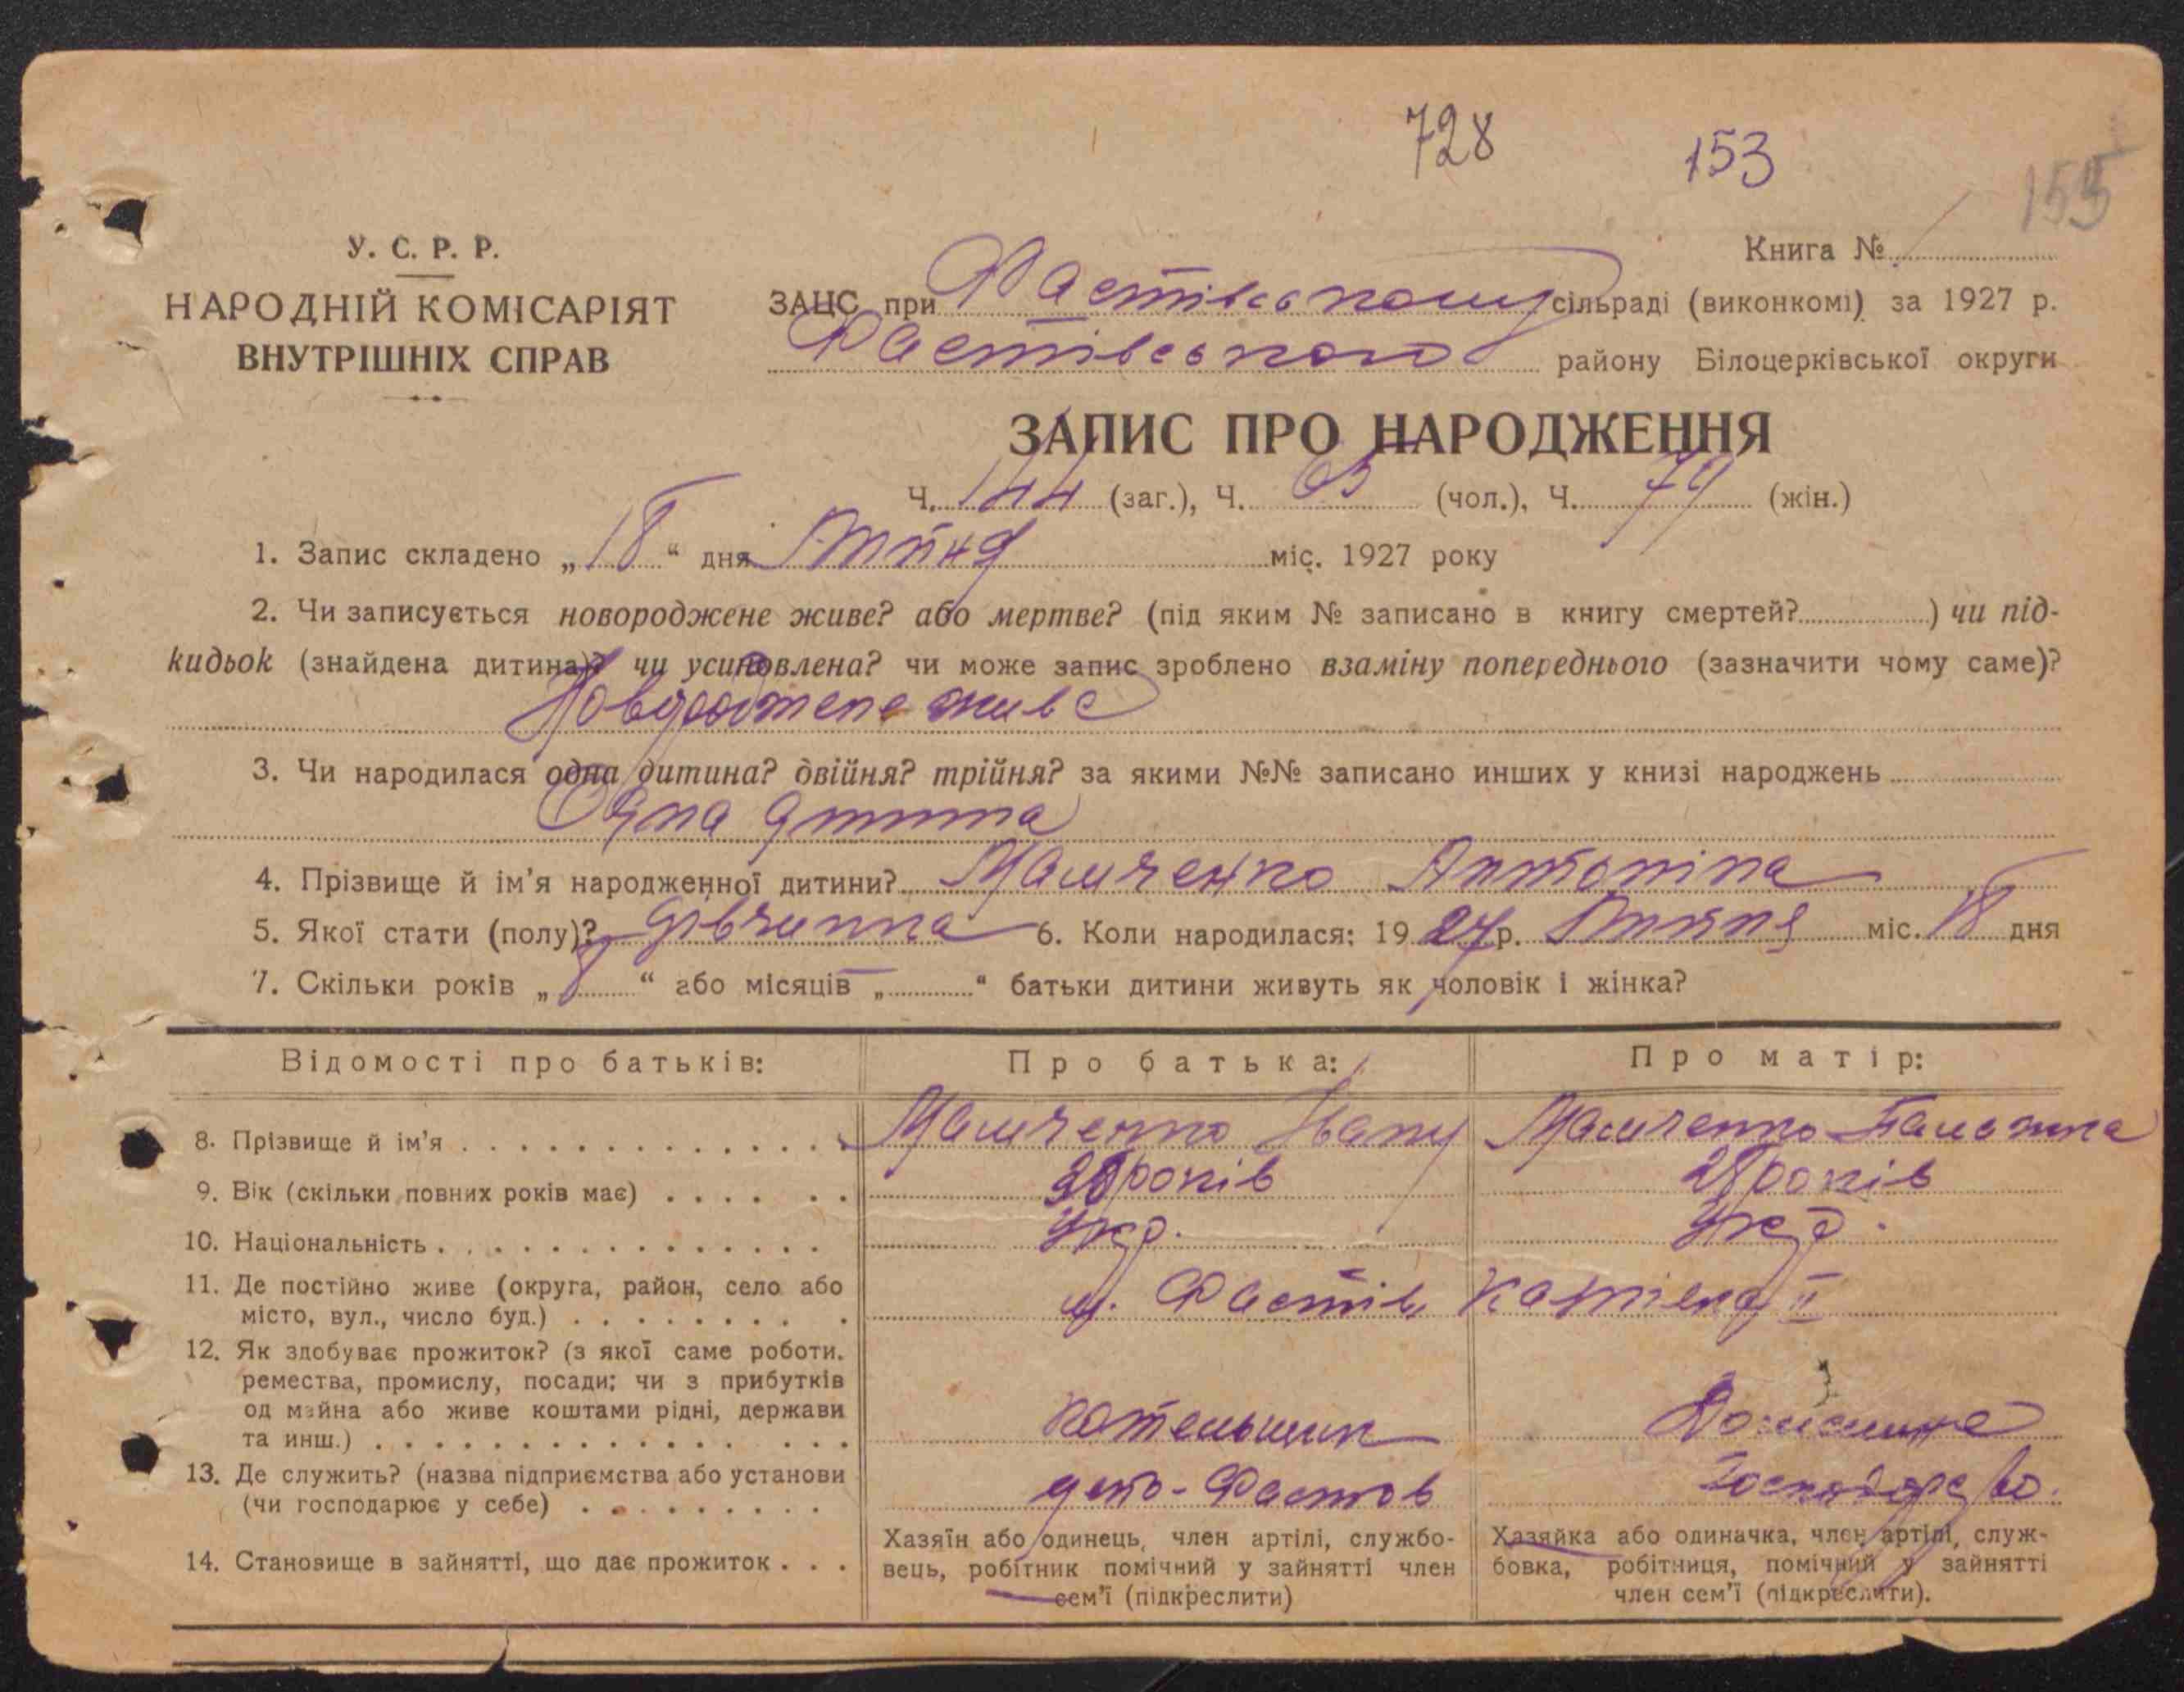 728
153
155
У. С. Р. Р.
Книга №
НАРОДНІЙ КОМІСАРІЯТ
ВНУТРІШНІХ СПРАВ
ЗАЦС при Фастівському сільраді (виконкомі) за 1927 р.
Фастівського району Білоцерківської округи
ЗАПИС ПРО НАРОДЖЕННЯ
Ч. 144 (заг.), Ч. 65 (чол.), Ч. 79 (жін.)
1. Запис складено „18“ дня Літня міс. 1927 року
2. Чи записується новороджене живе? або мертве? (під яким № записано в книгу смертей? ) чи під-
кидьок (знайдена дитина)? чи усиновлена? чи може запис зроблено взаміну попереднього (зазначити чому саме)?
Новороджене живе
3. Чи народилася одна дитина? двійня? трійня? за якими №№ записано инших у книзі народжень
Одна дитина
4. Прізвище й ім’я народженної дитини? Антоніна
5. Якої стати (полу)? дівчинка 6. Коли народилася: 1927 р. міс. 18 дня
7. Скільки років „ “ або місяців „ “ батьки дитини живуть як чоловік і жінка?
Відомості про батьків: Про батька: Про матір:
8. Прізвище й ім’я
9. Вік (скільки повних років має) років років
10. Національність Укр. Укр.
11. Де постійно живе (округа, район, село або
місто, вул., число буд.) м. Фастів
12. Як здобуває прожиток? (з якої саме роботи.
ремества, промислу, посади; чи з прибутків
од майна або живе коштами рідні, держави
та инш.) котельщик Домашнє
13. Де служить? (назва підприємства або установи
(чи господарює у себе) депо-Фастов господарство.
14. Становище в зайнятті, що дає прожиток
Хазяїн або одинець, член артілі, службо-
вець, робітник помічний у зайнятті член
сем’ї (підкреслити)
Хазяйка або одиначка, член артілі, служ-
бовка, робітниця, помічний у зайнятті
член сем’ї (підкреслити).